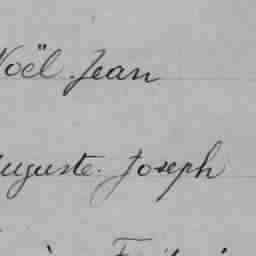 Noël Jean
Auguste Joseph